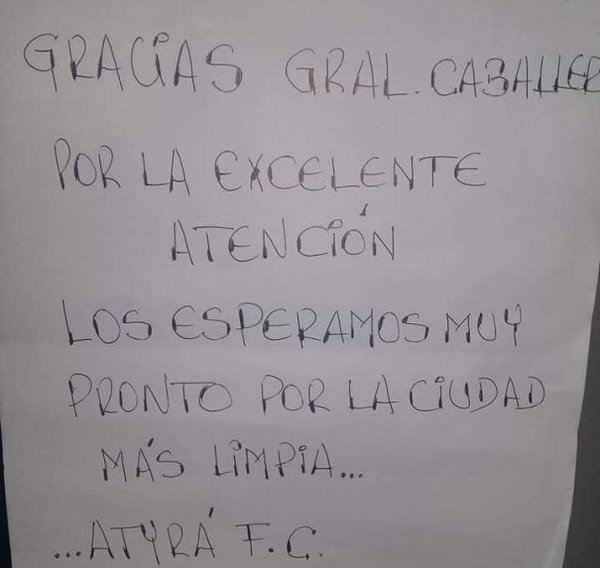 GRACIAS GRAL. CABALLER
POR LA EXCELENTE
ATENCIÓN
LOS ESPERAMOS MUY
PRONTO POR LA CIUDAD
MÁS LIMPIA...
...ATYRÁ F.C.